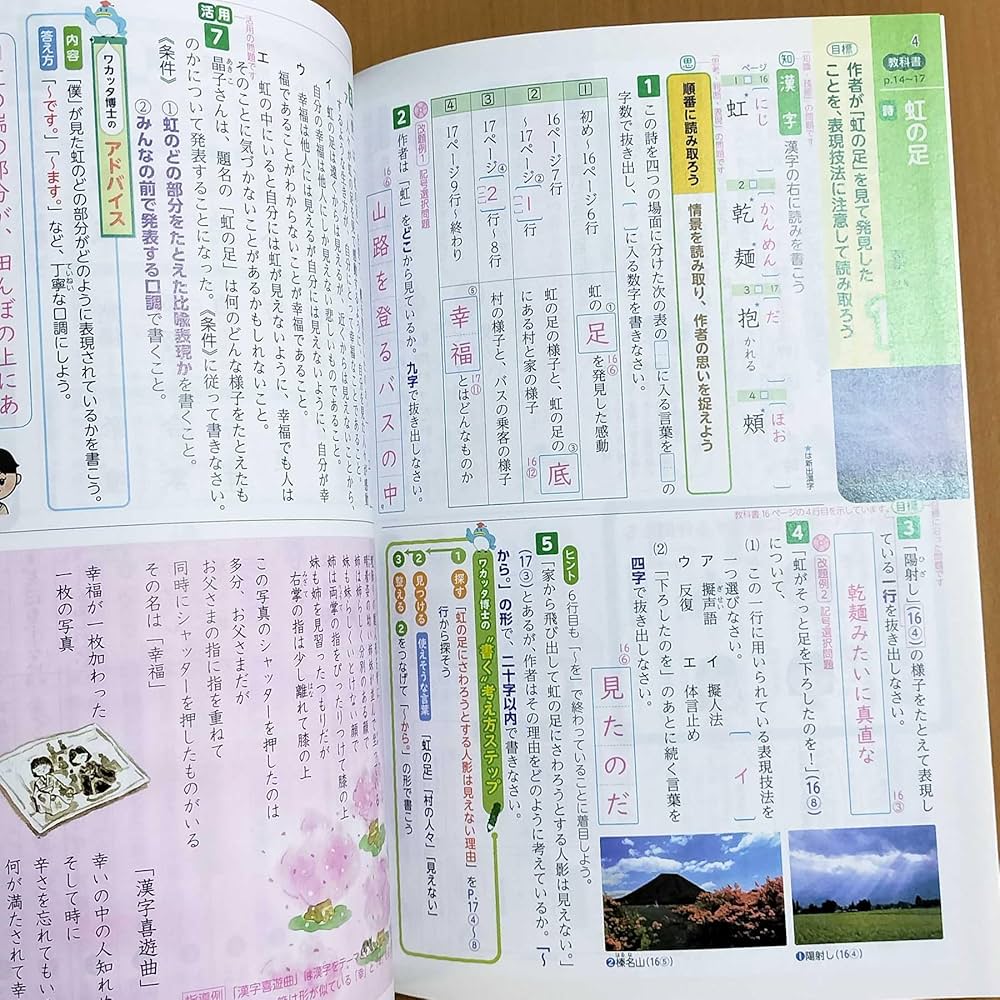 4
教科書
p.14〜17
虹の足
詩
目標
作者が「虹の足」を見て発見した
ことを、表現技法に注意して読み取ろう
知 漢字 漢字の右に読みを書こう
ページ
1 16 虹 にじ
2 乾麺 かんめん
3 17 抱かれる だ
4 頰 ほお
★は新出漢字
思
順番に読み取ろう
情景を読み取り、作者の思いを捉えよう
1 この詩を四つの場面に分けた次の表の□に入る言葉を□の
字数で抜き出し、〔 〕に入る数字を書きなさい。
1 初め〜16ページ6行
虹の①足を発見した感動
16⑥
2 16ページ7行
〜17ページ②〔1〕行
虹の足の様子と、虹の足の③底
にある村と家の様子
16⑫
3 17ページ④〔2〕行〜8行
村の様子と、バスの乗客の様子
4 17ページ9行〜終わり
⑤幸福とはどんなものか
17⑪
2 作者は「虹」をどこから見ているか。九字で抜き出しなさい。
改題例1 記号選択問題
16⑥
山路を登るバスの中
教科書16ページの4行目を示しています。
目標
3 「陽射し」(16④)の様子をたとえて表現し
ている一行を抜き出しなさい。
16③
乾麺みたいに真直な
改題例2 記号選択問題
4 「虹がそっと足を下ろしたのを!」(16⑧)
について、
(1) この一行に用いられている表現技法を
一つ選びなさい。 〔イ〕
ア 擬声語 イ 擬人法
ウ 反復 エ 体言止め
(2) 「下ろしたのを」のあとに続く言葉を
四字で抜き出しなさい。
16⑥
見たのだ
ヒント 6行目も「〜を」で終わっていることに着目しよう。
5 「家から飛び出して虹の足にさわろうとする人影は見えない。」
(17③)とあるが、作者はその理由をどのように考えているか。「〜
から。」の形で、二十字以内で書きなさい。
ワカッタ博士の“書く”考え方ステップ
1 探す 「虹の足にさわろうとする人影は見えない理由」をP.17④〜⑧
行から探そう
2 見つける 使えそうな言葉 「虹の足」「村の人々」「見えない」
3 整える 2をつなげて「〜から。」の形で書こう
①陽射し(16④)
②榛名山(16⑤)
活用
活用の問題です
7 晶子さんは、題名の「虹の足」は何のどんな様子をたとえたも
のかについて発表することになった。《条件》に従って書きなさい。
《条件》 ①虹のどの部分をたとえた比喩表現かを書くこと。
②みんなの前で発表する口調で書くこと。
ワカッタ博士の アドバイス
内容 「僕」が見た虹のどの部分がどのように表現されているかを書こう。
答え方 「〜です。」「〜ます。」など、丁寧な口調にしよう。
イ 虹の足は遠くからは見えるが、近くからは見えないことから、
自分の幸福は他人にしか見えない悲しいものであること。
ウ 幸福は他人には見えるが自分には見えないように、自分が幸
福であることがわからないことが幸福であること。
エ 虹の中にいると自分には虹が見えないように、幸福でも人は
そのことに気づかないことがあるかもしれないこと。
妹も姉を見習ったつもりだが
右掌の指は少し離れて膝の上
この写真のシャッターを押したのは
多分、お父さまだが
お父さまの指に指を重ねて
同時にシャッターを押したものがいる
その名は「幸福」
幸福が一枚加わった
一枚の写真
「漢字喜遊曲」
幸いの中の人知れ
そして時に
辛さを忘れてもい
何が満たされて幸